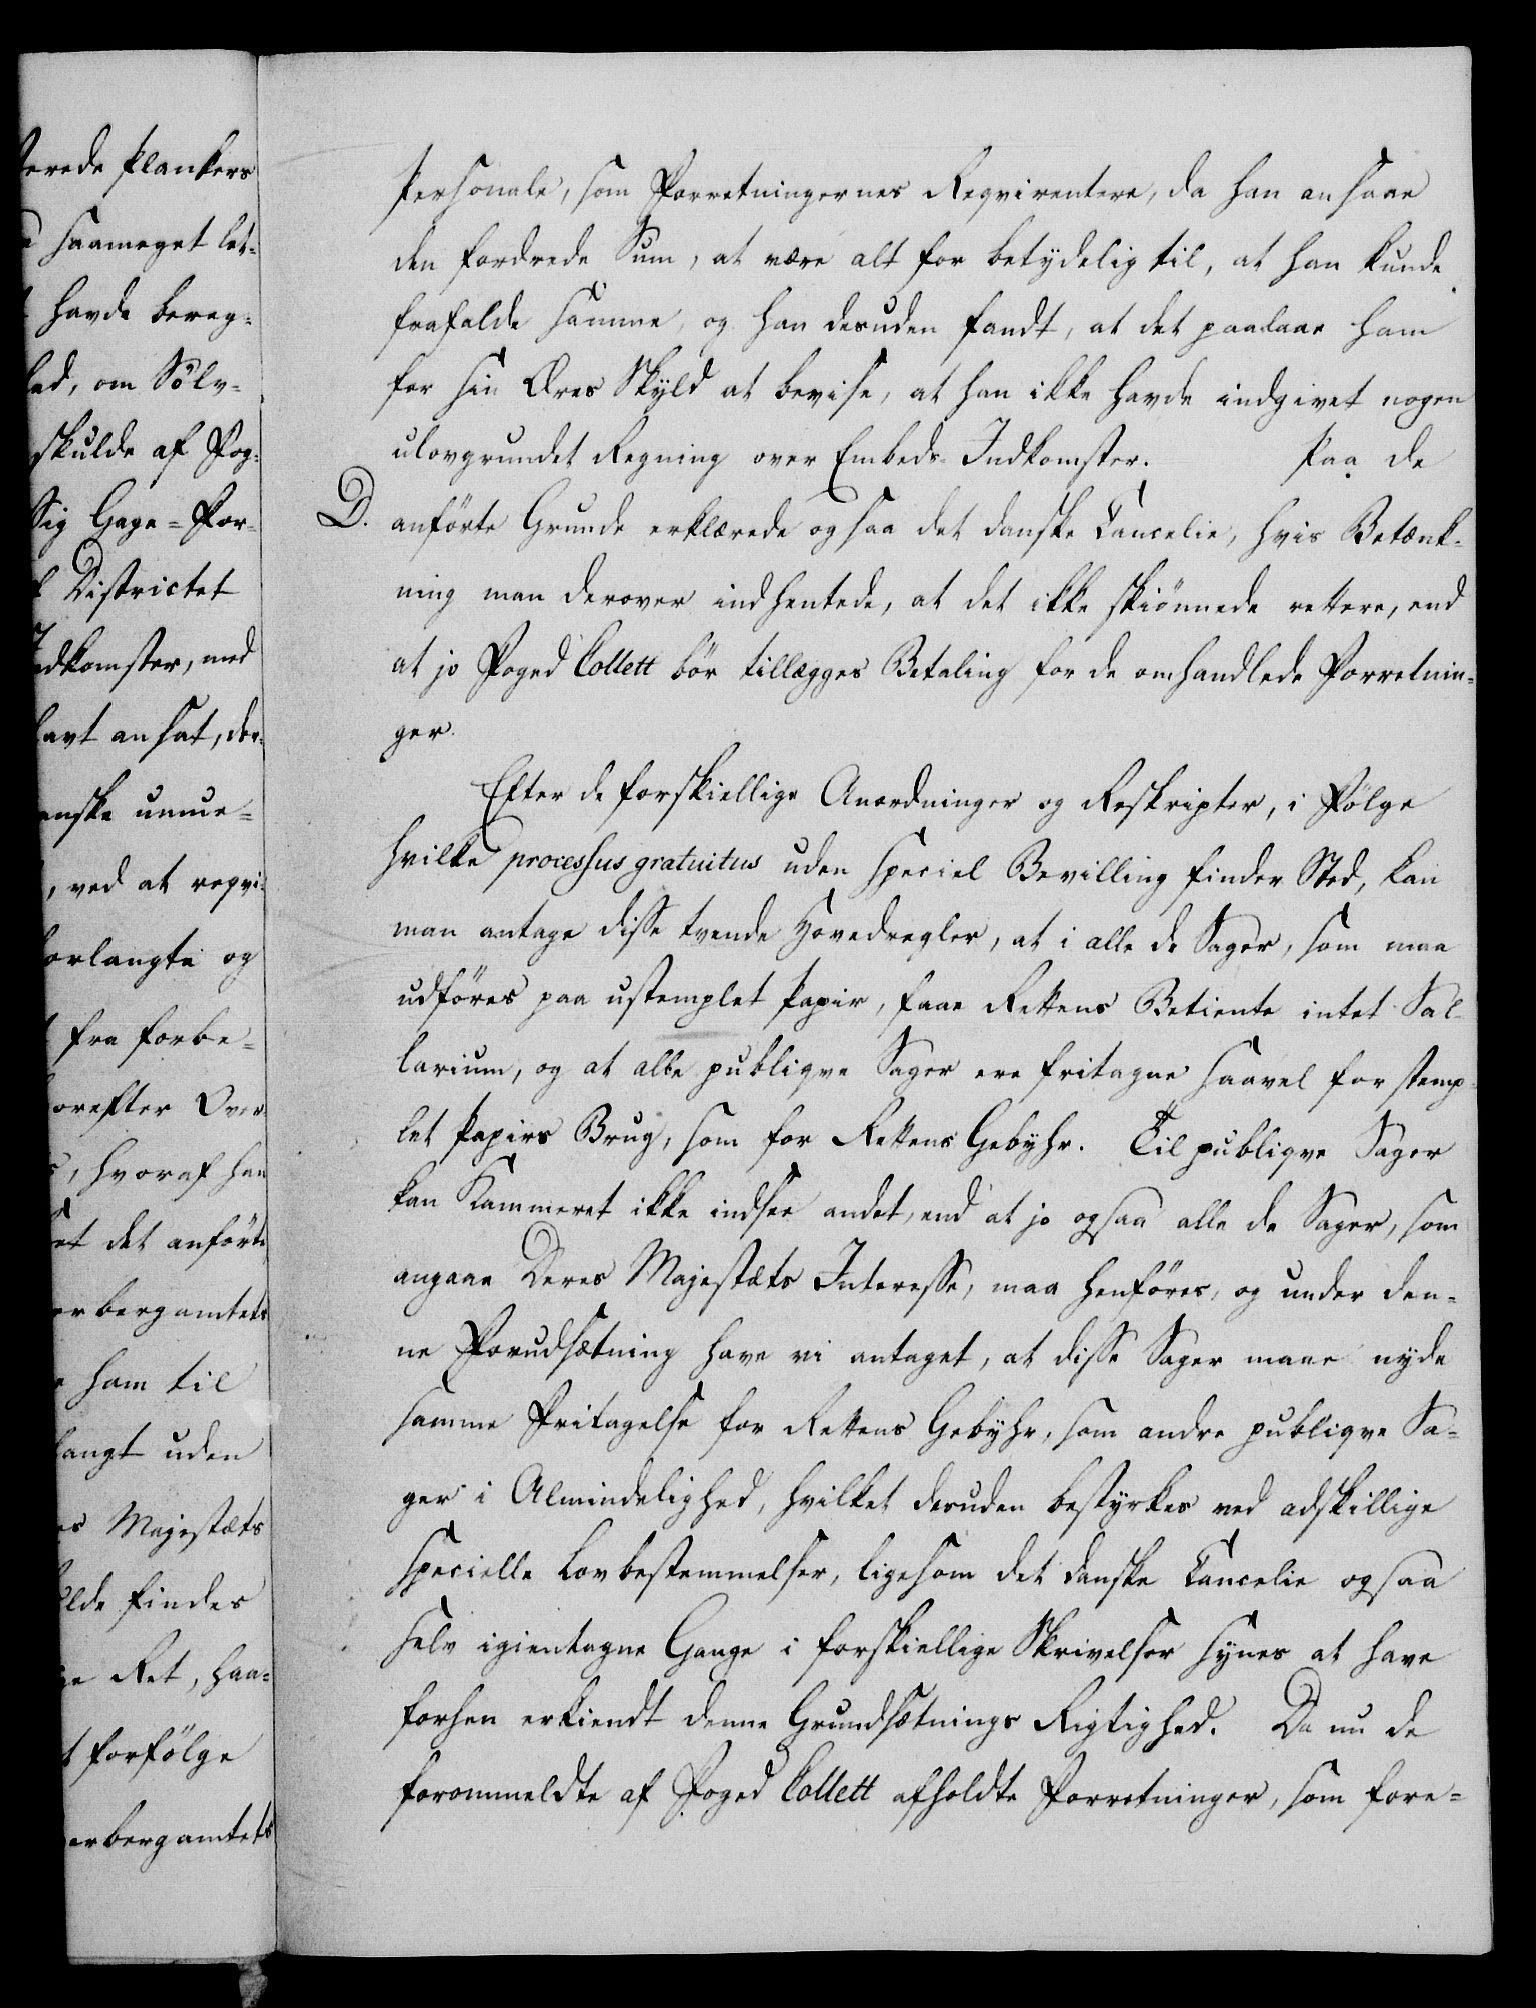 erede Plankers
saameget let-
havde bereg-
led, om Sölv-
skulde af Fog-
Sig Gage-For-
Districtet
Indkomster, med
lavt ansat, der-
enske unue-
, ved at reqvi-
forlangte og
fra forbe-
orefter Over-
, hvoraf han
et det anförte
erbergamtets
ham til
langt uden
es Majestæts
lde findes
ge Ret, haa-
forfölge
erbergamtets
Personale, som Forretningernes Reqvirentere, da han ansaae
den fordrede Sum, at være alt for betydelig til, at han kunde
frafalde samme, og han desuden fandt, at det paalaae ham
for sin Æres Skyld at bevise, at han ikke havde indgivet nogen
ulovgrundet Regning over Embeds-Indkomster. Paa de
D. anförte Grunde erklærede ogsaa det danske Cancelie, hvis Betænk-
ning man derover indhentede, at det ikke skiönnede rettere, end
at jo Foged Collett bör tillægges Betaling for de omhandlede Forretnin-
ger.
Efter de forskiellige Anordninger og Reskripter, i Fölge
hvilke processus gratuitus uden speciel Bevilling finder Sted, kan
man antage disse tvende Hovedregler, at i alle de Sager, som maa
udföres paa ustemplet Papir, faae Rettens Betiente intet Sal-
larium, og at alle publiqve Sager ere fritagne saavel for stemp-
let Papirs Brug, som for Rettens Gebyhr. Til publiqve Sager
kan Kammeret ikke indsee andet, end at jo ogsaa alle de Sager, som
angaae Deres Majestæts Interesse, maa henföres, og under den-
ne Forudsætning have vi antaget, at disse Sager maae nyde
samme Fritagelse for Rettens Gebyhr, som andre publiqve Sa-
ger i Almindelighed, hvilket desuden bestyrkes ved adskillige
specielle Lovbestemmelser, ligesom det danske Cancelie ogsaa
selv igientagne Gange i forskiellige Skrivelser synes at have
forhen erkiendt denne Grundsætnings Rigtighed. Da nu de
forommeldte af Foged Collett afholdte Forretninger, som fore-